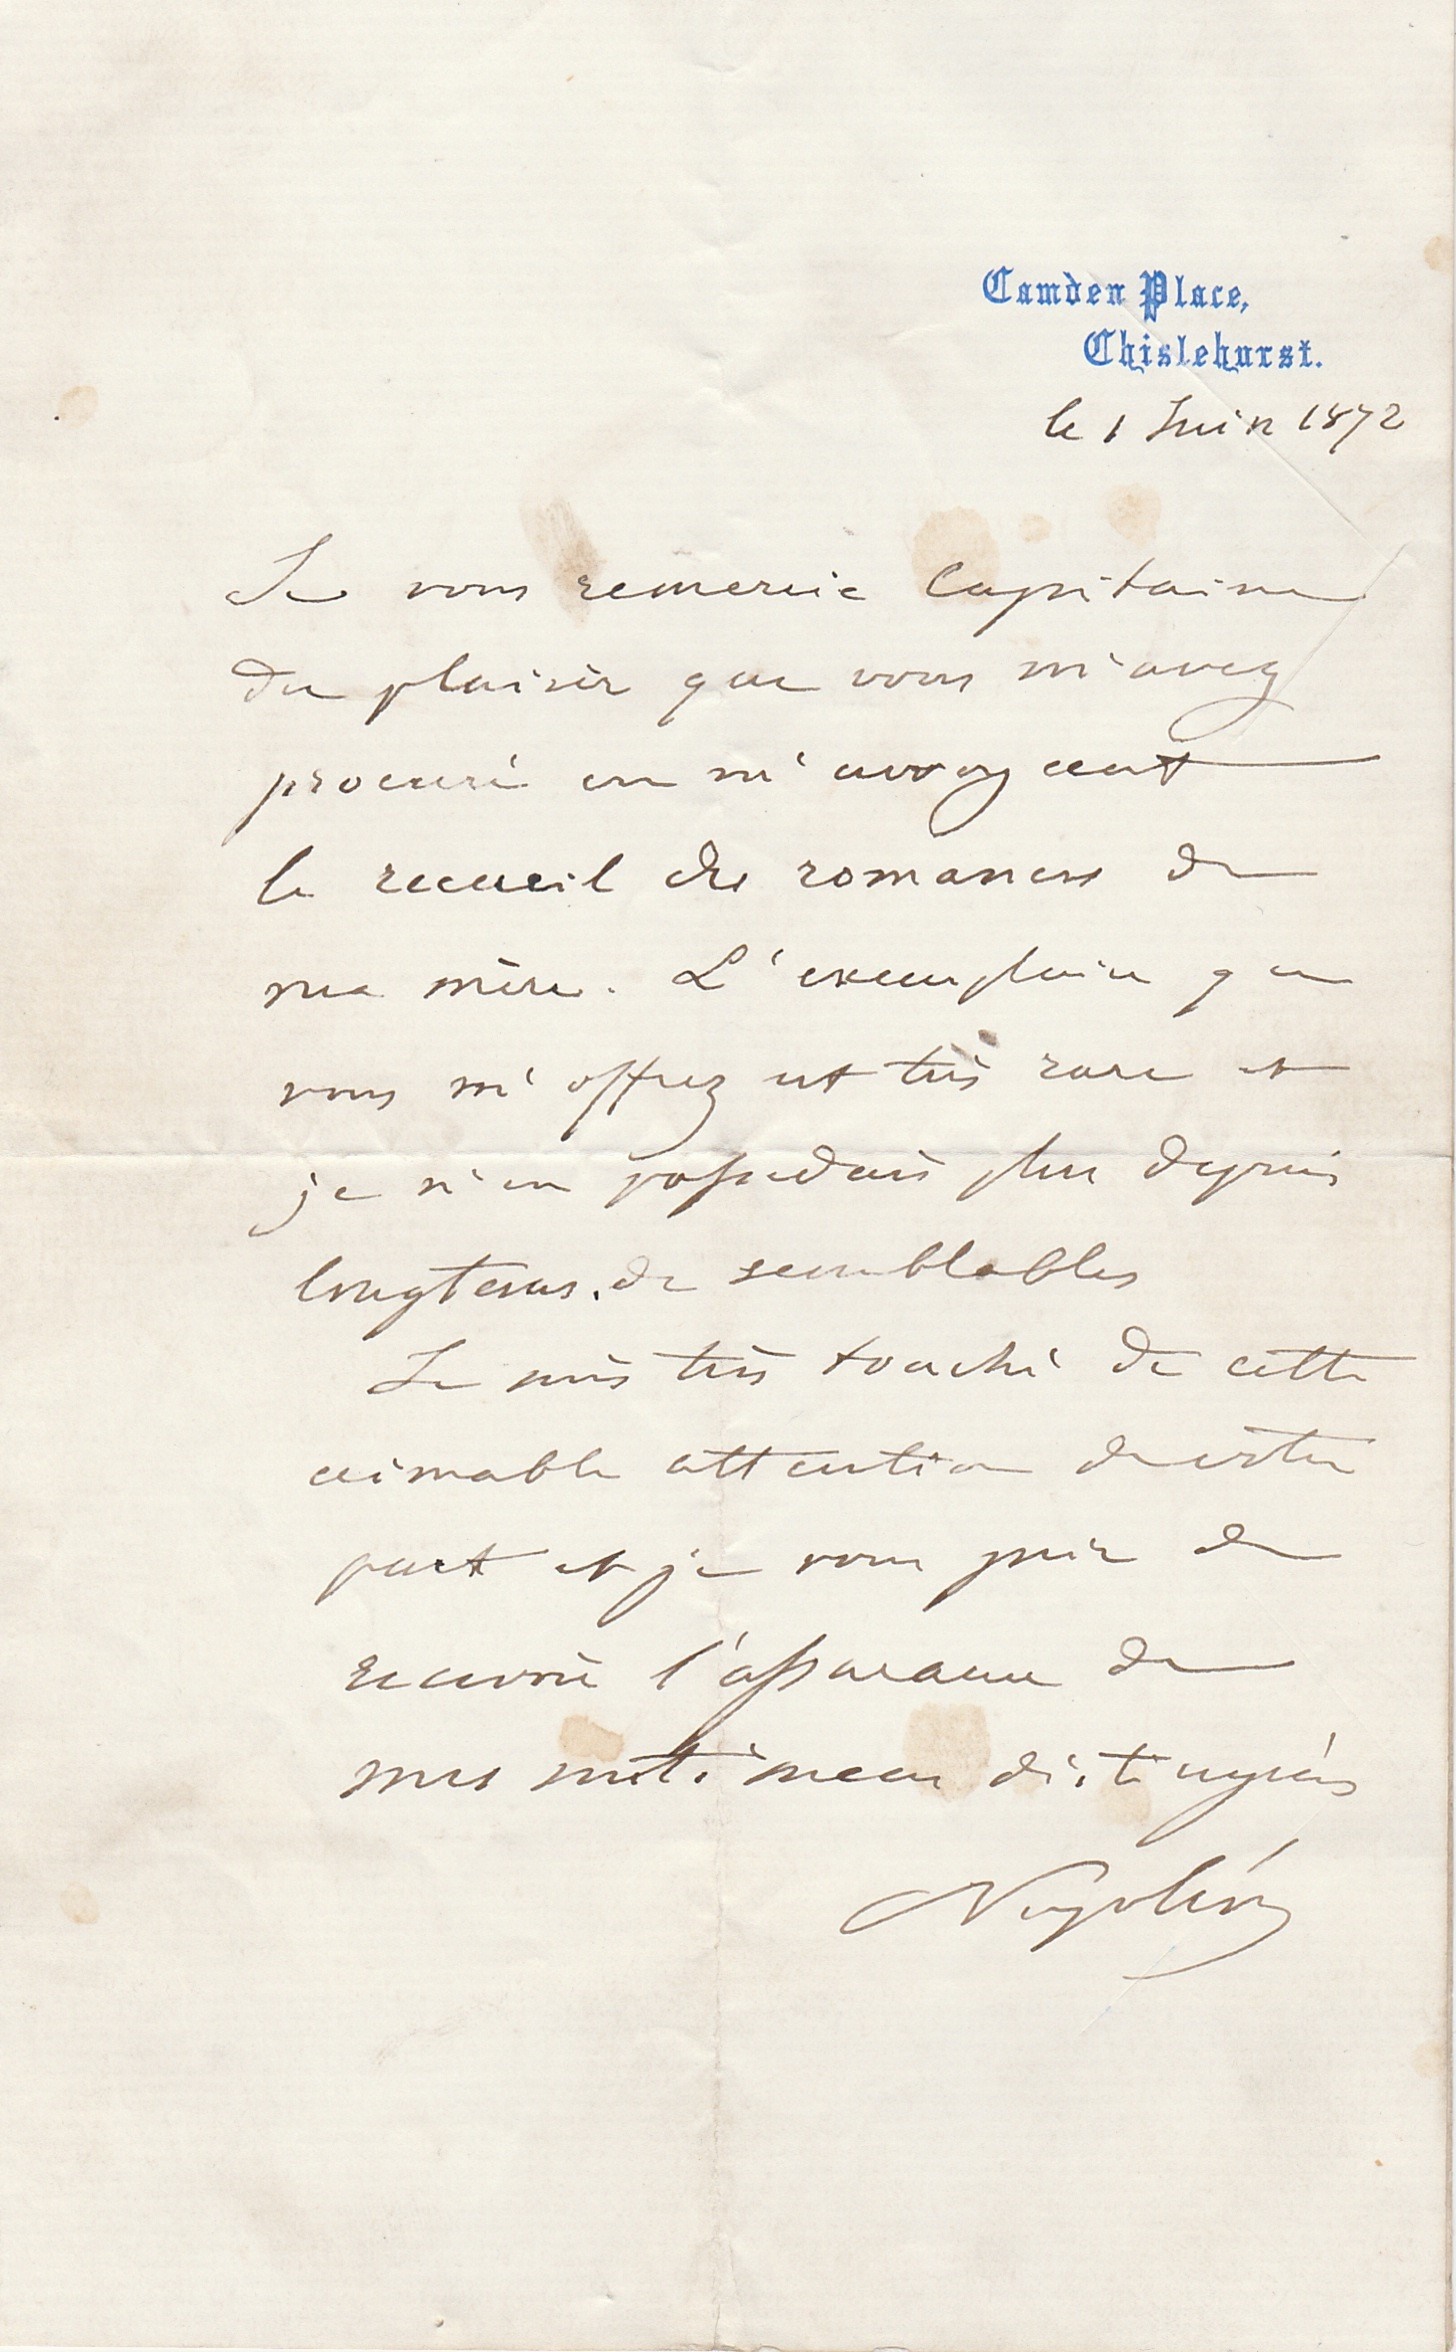 Camden Place,
Chislehurst.
le 1 Juin 1872
Je vous remercie Capitaine
du plaisir que vous m'avez
procuré en m'envoyant
le recueil des romances de
ma mère. L'exemplaire que
vous m'offrez est très rare et
je n'en possedais plus depuis
longtems de semblables
Je suis très touché de cette
aimable attention de votre
part et je vous prie de
recevoir l'assurance de
mes sentimens distingués
Napoléon